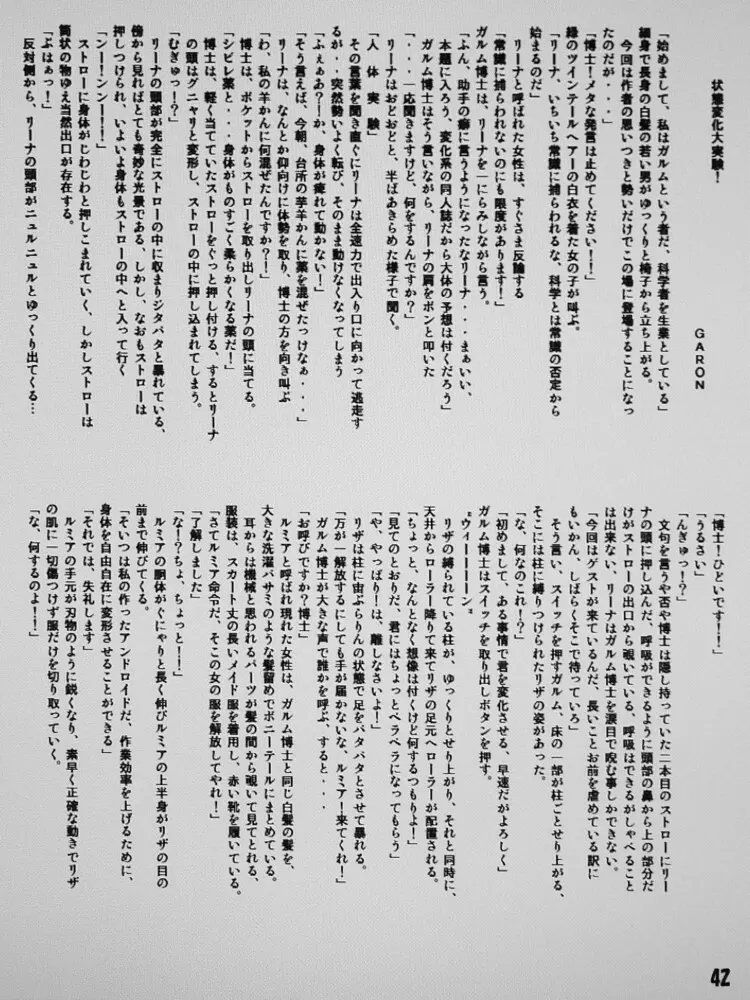 状態変化大実験！
GARON
「始めまして、私はガルムという者だ、科学者を生業としている」
細身で長身の白髪の若い男がゆっくりと椅子から立ち上がる。
「今回は作者の思いつきと勢いだけでこの場に登場することになっ
たのだが・・・・」
「博士！メタな発言は止めてください！！」
緑のツインテールヘアーの白衣を着た女の子が叫ぶ。
「リーナ、いちいち常識に捕らわれるな、科学とは常識の否定から
始まるのだ」
リーナと呼ばれた女性は、すぐさま反論する
「常識に捕らわれないのにも限度があります！」
ガルム博士は、リーナを一にらみしながら言う。
「ふん、助手の癖に言うようになったなリーナ・・・まぁいい、
本題に入ろう、変化系の同人誌だから大体の予想は付くだろう」
ガルム博士はそう言いながら、リーナの肩をポンと叩いた
「・・・・一応聞きますけど、何をするんですか？」
リーナはおどおどと、半ばあきらめた様子で聞く。
「人体実験」
その言葉を聞き直ぐにリーナは全速力で出入り口に向かって逃走す
るが・・突然勢いよく転び、そのまま動けなくなってしまう
「ふぇぁあ？！か、身体が痺れて動かない！」
「そう言えば、今朝、台所の芋羊かんに薬を混ぜたっけなぁ・・・」
リーナは、なんとか仰向けに体勢を取り、博士の方を向き叫ぶ
「わ、私の羊かんに何混ぜたんですか？！」
博士は、ポケットからストローを取り出しリーナの頭に当てる。
「シビレ薬と・・・身体がものすごく柔らかくなる薬だ！」
博士は、軽く当てていたストローをぐっと押し付ける、するとリーナ
の頭はグニャリと変形し、ストローの中に押し込まれてしまう。
「むぎゅっ！？」
リーナの頭部が完全にストローの中に収まりジタバタと暴れている、
傍から見ればとても奇妙な光景である、しかし、なおもストローは
押しつけられ、いよいよ身体もストローの中へと入って行く
「ンー！ンンー！！」
ストローに身体がじわじわと押しこまれていく、しかしストローは
筒状の物ゆえ当然出口が存在する。
「ぷはぁっ！」
反対側から、リーナの頭部がニュルニュルとゆっくり出てくる…
「博士！ひどいです！！」
「うるさい」
「んぎゅっ！？」
文句を言うや否や博士は隠し持っていた二本目のストローにリー
ナの頭に押し込んだ、呼吸ができるように頭部の鼻から上の部分だ
けがストローの出口から覗いている、呼吸はできるがしゃべること
は出来ない、リーナはガルム博士を涙目で睨む事しかできない。
「今回はゲストが来ているんだ、長いことお前を虐めている訳に
もいかん、しばらくそこで待っていろ」
そう言い、スイッチを押すガルム、床の一部が柱ごとせり上がる、
そこには柱に縛りつけられたリザの姿があった。
「な、何なのこれ！？」
「初めまして、ある事情で君を変化させる、早速だがよろしく」
ガルム博士はスイッチを取り出しボタンを押す。
"ウィーーーーン"
リザの縛られている柱が、ゆっくりとせり上がり、それと同時に、
天井からローラー降りて来てリザの足元へローラーが配置される。
「ちょっと、なんとなく想像は付くけど何するつもりよ！」
「見てのとおりだ、君にはちょっとペラペラになってもらう」
「や、やっぱり！は、離しなさいよ！」
リザは柱に宙ぶらりんの状態で足をバタバタとさせて暴れる。
「万が一解放するにしても手が届かないな、ルミア！来てくれ！」
ガルム博士が大きな声で誰かを呼ぶ、すると・・・
「お呼びですか？博士」
ルミアと呼ばれ現れた女性は、ガルム博士と同じ白髪の髪を、
大きな洗濯バサミのような髪留めでポニーテールにまとめている。
耳からは機械と思われるパーツが髪の間から覗いて見てとれる、
服装は、スカート丈の長いメイド服を着用し、赤い靴を履いている。
「さてルミア命令だ、そこの女の服を解放してやれ！」
「了解しました」
「な！？ちょ、ちょっと！！」
ルミアの胴体がぐにゃりと長く伸びルミアの上半身がリザの目の
前まで伸びてくる。
「そいつは私の作ったアンドロイドだ、作業効率を上げるために、
身体を自由自在に変形させることができる」
「それでは、失礼します」
ルミアの手元が刃物のように鋭くなり、素早く正確な動きでリザ
の肌に一切傷つけず服だけを切り取っていく。
「な、何するのよ！！」
42